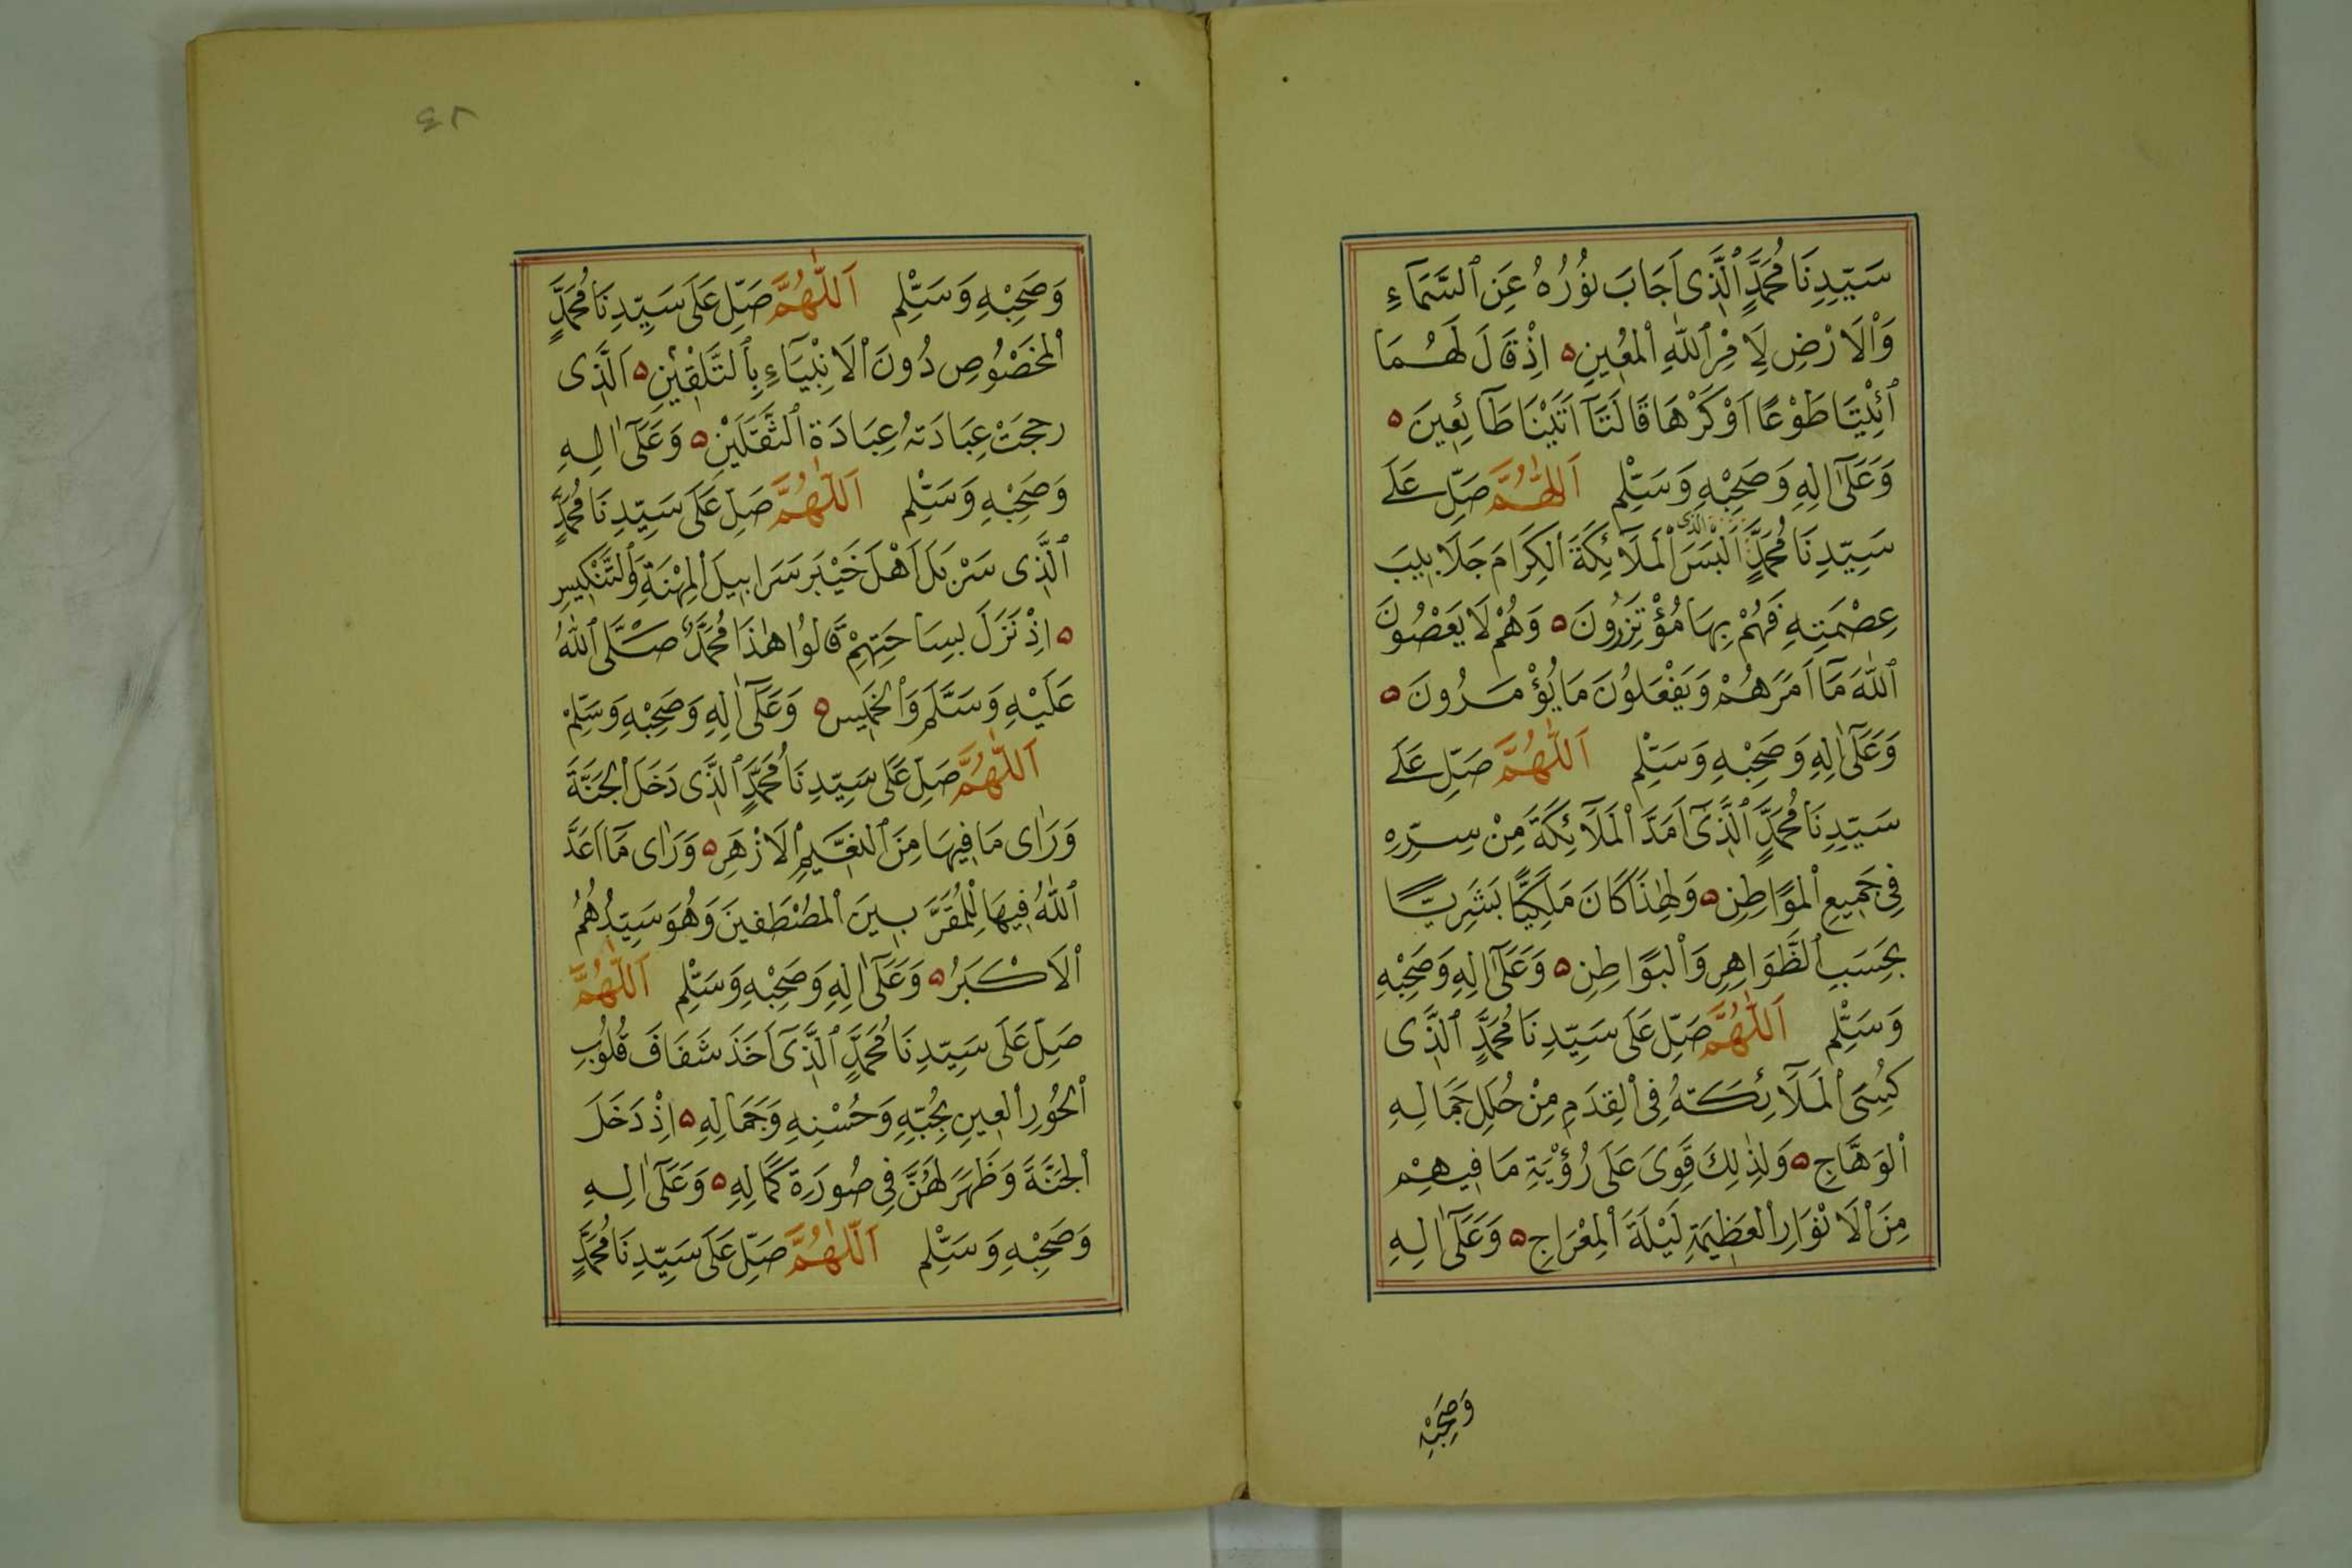 سَيِّدِنَا مُحَمَّدٍ ٱلَّذِى اَجَابَ نُوُرُهُ عَنِ ٱلسَّمَآءِ
وَٱلْاَرْضِ لِاَمْرِ ٱللّٰهِ ٱلْمُعِينِ ۵ اِذْ قَالَ لَهُمَا
ٱئْتِيَا طَوْعًا اَوْ كَرْهًا قَالَتَآ اَتَيْنَا طَآئِعِينَ ۵
وَعَلَىٓ اٰلِهِ وَصَحْبِهِ وَسَلِّمْ اَللّٰهُمَّ صَلِّ عَلَے
سَيِّدِنَا مُحَمَّدٍ الذى اَلْبَسَ ٱلْمَلَآئِكَةَ ٱلْكِرَامَ جَلَابِيبَ
عِصْمَتِهِ فَهُمْ بِهَا مُؤْتَزِرُونَ ۵ وَهُمْ لَا يَعْصُونَ
ٱللّٰهَ مَآ اَمَرَهُمْ وَيَفْعَلُونَ مَا يُؤْمَرُونَ ۵
وَعَلَىٓ اٰلِهِ وَصَحْبِهِ وَسَلِّمْ اَللّٰهُمَّ صَلِّ عَلَے
سَيِّدِنَا مُحَمَّدٍ ٱلَّذِىٓ اَمَدَّ ٱلْمَلَآئِكَةَ مِنْ سِرِّهِ
فِى جَمِيعِ ٱلْمَوَاطِنِ ۵ وَلِهٰذَا كَانَ مَلَكِيًّا بَشَرِيًّا
بِحَسَبِ ٱلظَّوَاهِرِ وَٱلْبَوَاطِنِ ۵ وَعَلَىٓ اٰلِهِ وَصَحْبِهِ
وَسَلِّمْ اَللّٰهُمَّ صَلِّ عَلَى سَيِّدِنَا مُحَمَّدٍ ٱلَّذِى
كُسِىَ ٱلْمَلَآئِكَتُهُ فِى ٱلْقِدَمِ مِنْ حُلَلِ جَمَالِهِ
ٱلْوَهَّاجِ ۵ وَلِذٰلِكَ قَوِىَ عَلَى رُؤْيَةِ مَا فِيهِمْ
مِنَ ٱلْاَنْوَارِ ٱلْعَظِيمَةِ لَيْلَةَ ٱلْمِعْرَاجِ ۵ وَعَلَىٓ اٰلِهِ
وَصَحْبِهِ
٤٢
وَصَحْبِهِ وَسَلِّمْ اَللّٰهُمَّ صَلِّ عَلَى سَيِّدِنَا مُحَمَّدٍ
ٱلْمَخْصُوصِ دُونَ ٱلْاَنْبِيَآءِ بِٱلتَّلْقِيْنِ ۵ اَلَّذِى
رجحَتْ عِبَادَتهُ عِبَادَةَ ٱلثَّقَلَيْنِ ۵ وَعَلَىٓ اٰلِهِ
وَصَحْبِهِ وَسَلِّمْ اَللّٰهُمَّ صَلِّ عَلَى سَيِّدِنَا مُحَمَّدٍ
ٱلَّذِى سَرْبَلَ اَهْلَ خَيْبَر سَرَابِيلَ ٱلْمِهْنَةِ وَٱلتَّنْكِيسِ
۵ اِذْ نَزَلَ بِسَاحَتِهِمْ قَالُوا هٰذَا مُحَمَّدٌ صَلَّى ٱللّٰهُ
عَلَيْهِ وَسَلَّمَ وَٱلْخَمِيس ۵ وَعَلَىٓ اٰلِهِ وَصَحْبِهِ وَسَلِّمْ
اَللّٰهُمَّ صَلِّ عَلَى سَيِّدِنَا مُحَمَّدٍ ٱلَّذِى دَخَلَ ٱلْجَنَّةَ
وَرَاٰى مَا فِيهَا مِنَ ٱلنَّعِيمِ ٱلْاَزْهَرِ ۵ وَرَاٰى مَآ اَعَدَّ
ٱللّٰهُ فِيهَا لِلْمُقَرَّبِينَ ٱلْمُصْطَفينَ وَهُوَ سَيِّدُهُمُ
ٱلْاَكْبَرُ ۵ وَعَلَىٓ اٰلِهِ وَصَحْبِهِ وَسَلِّمْ اَللّٰهُمَّ
صَلِّ عَلَى سَيِّدِنَا مُحَمَّدٍ ٱلَّذِىٓ اَخَذَ شَغَافَ قُلُوبِ
ٱلْحُورِ ٱلْعِينِ بِحُبِّهِ وَحُسْنِهِ وَجَمَالِهِ ۵ اِذْ دَخَلَ
ٱلْجَنَّةَ وَظَهَرَ لَهُنَّ فِى صُورَةِ كَمَالِهِ ۵ وَعَلَىٓ اٰلِهِ
وَصَحْبِهِ وَسَلِّمْ اَللّٰهُمَّ صَلِّ عَلَى سَيِّدِنَا مُحَمَّدٍ